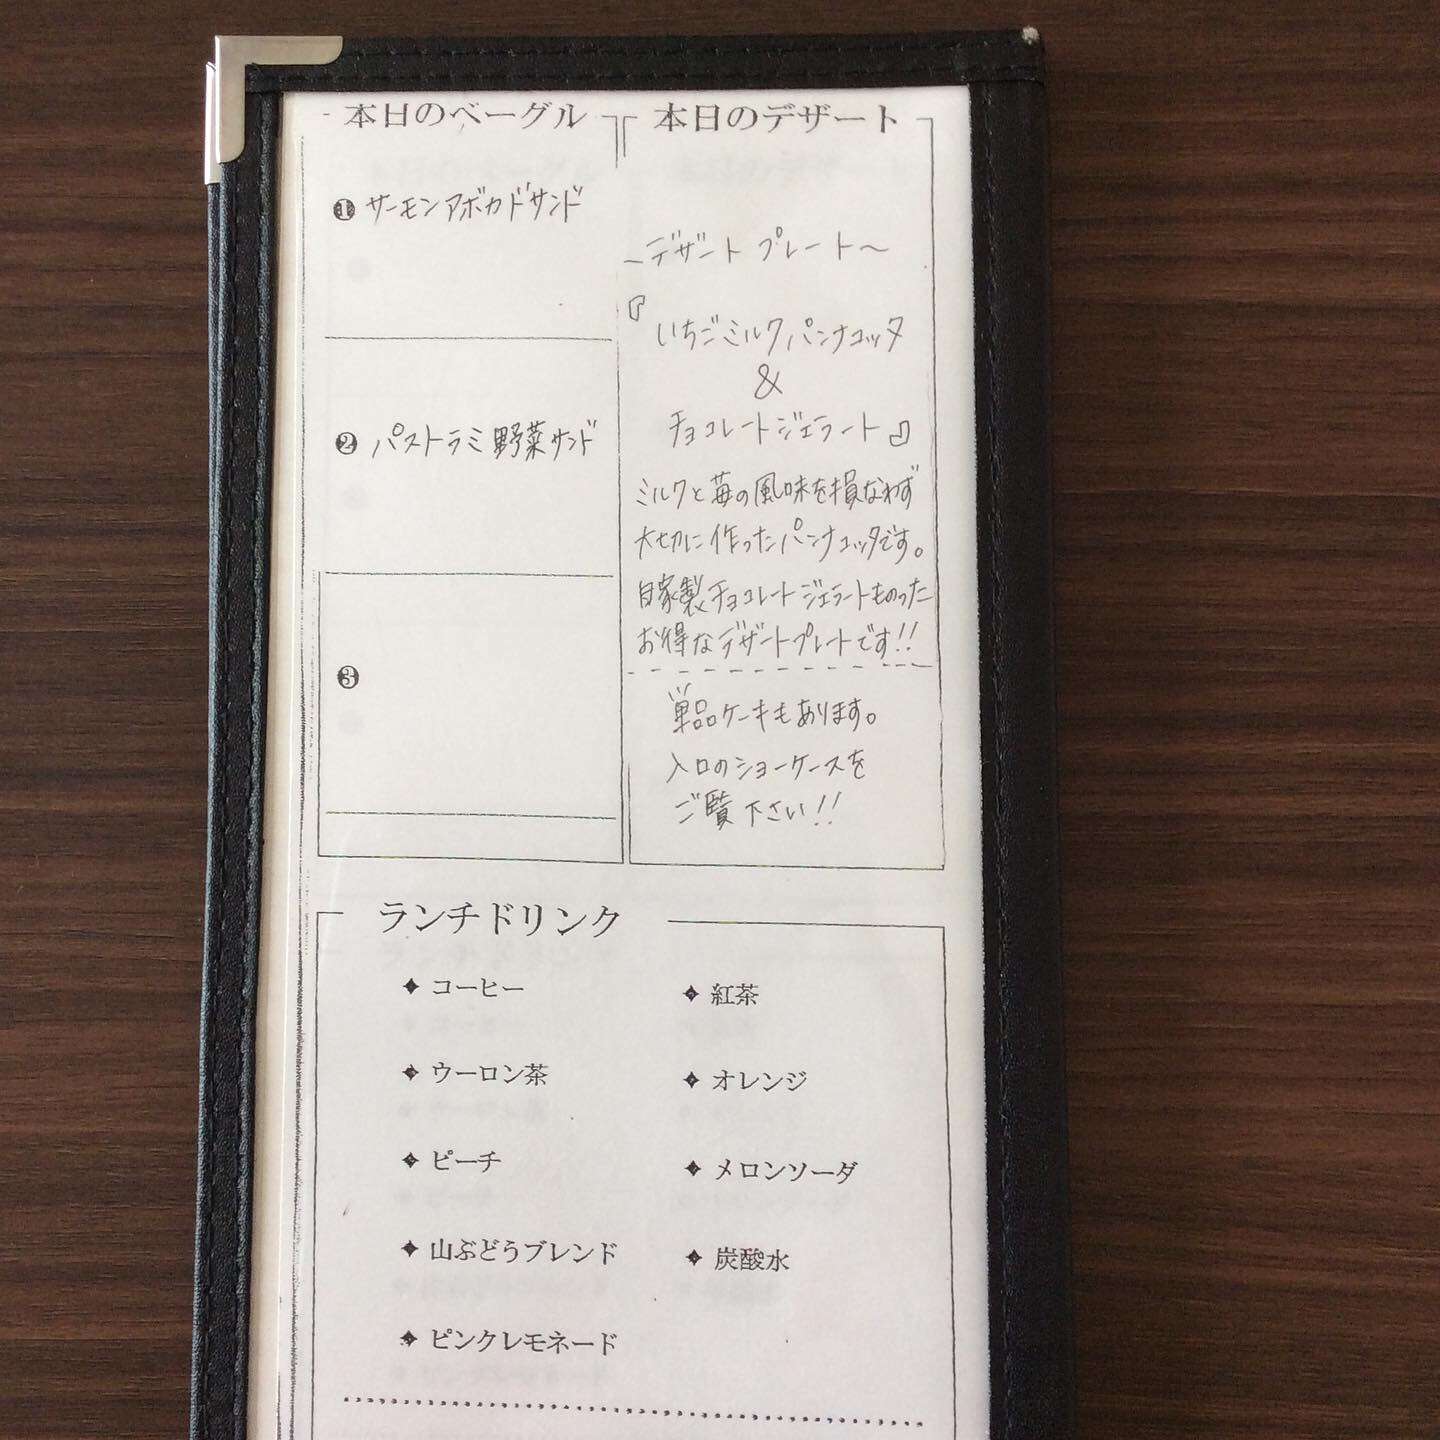 本日のベーグル
❶ サーモンアボカドサンド
❷ パストラミ野菜サンド
❸
本日のデザート
~デザートプレート~
『いちごミルクパンナコッタ
&
チョコレートジェラート』
ミルクと苺の風味を損なわず
大切に作ったパンナコッタです。
自家製チョコレートジェラートものった
お得なデザートプレートです!!
単品ケーキもあります。
入口のショーケースを
ご覧下さい!!
ランチドリンク
コーヒー
紅茶
ウーロン茶
オレンジ
ピーチ
メロンソーダ
山ぶどうブレンド
炭酸水
ピンクレモネード